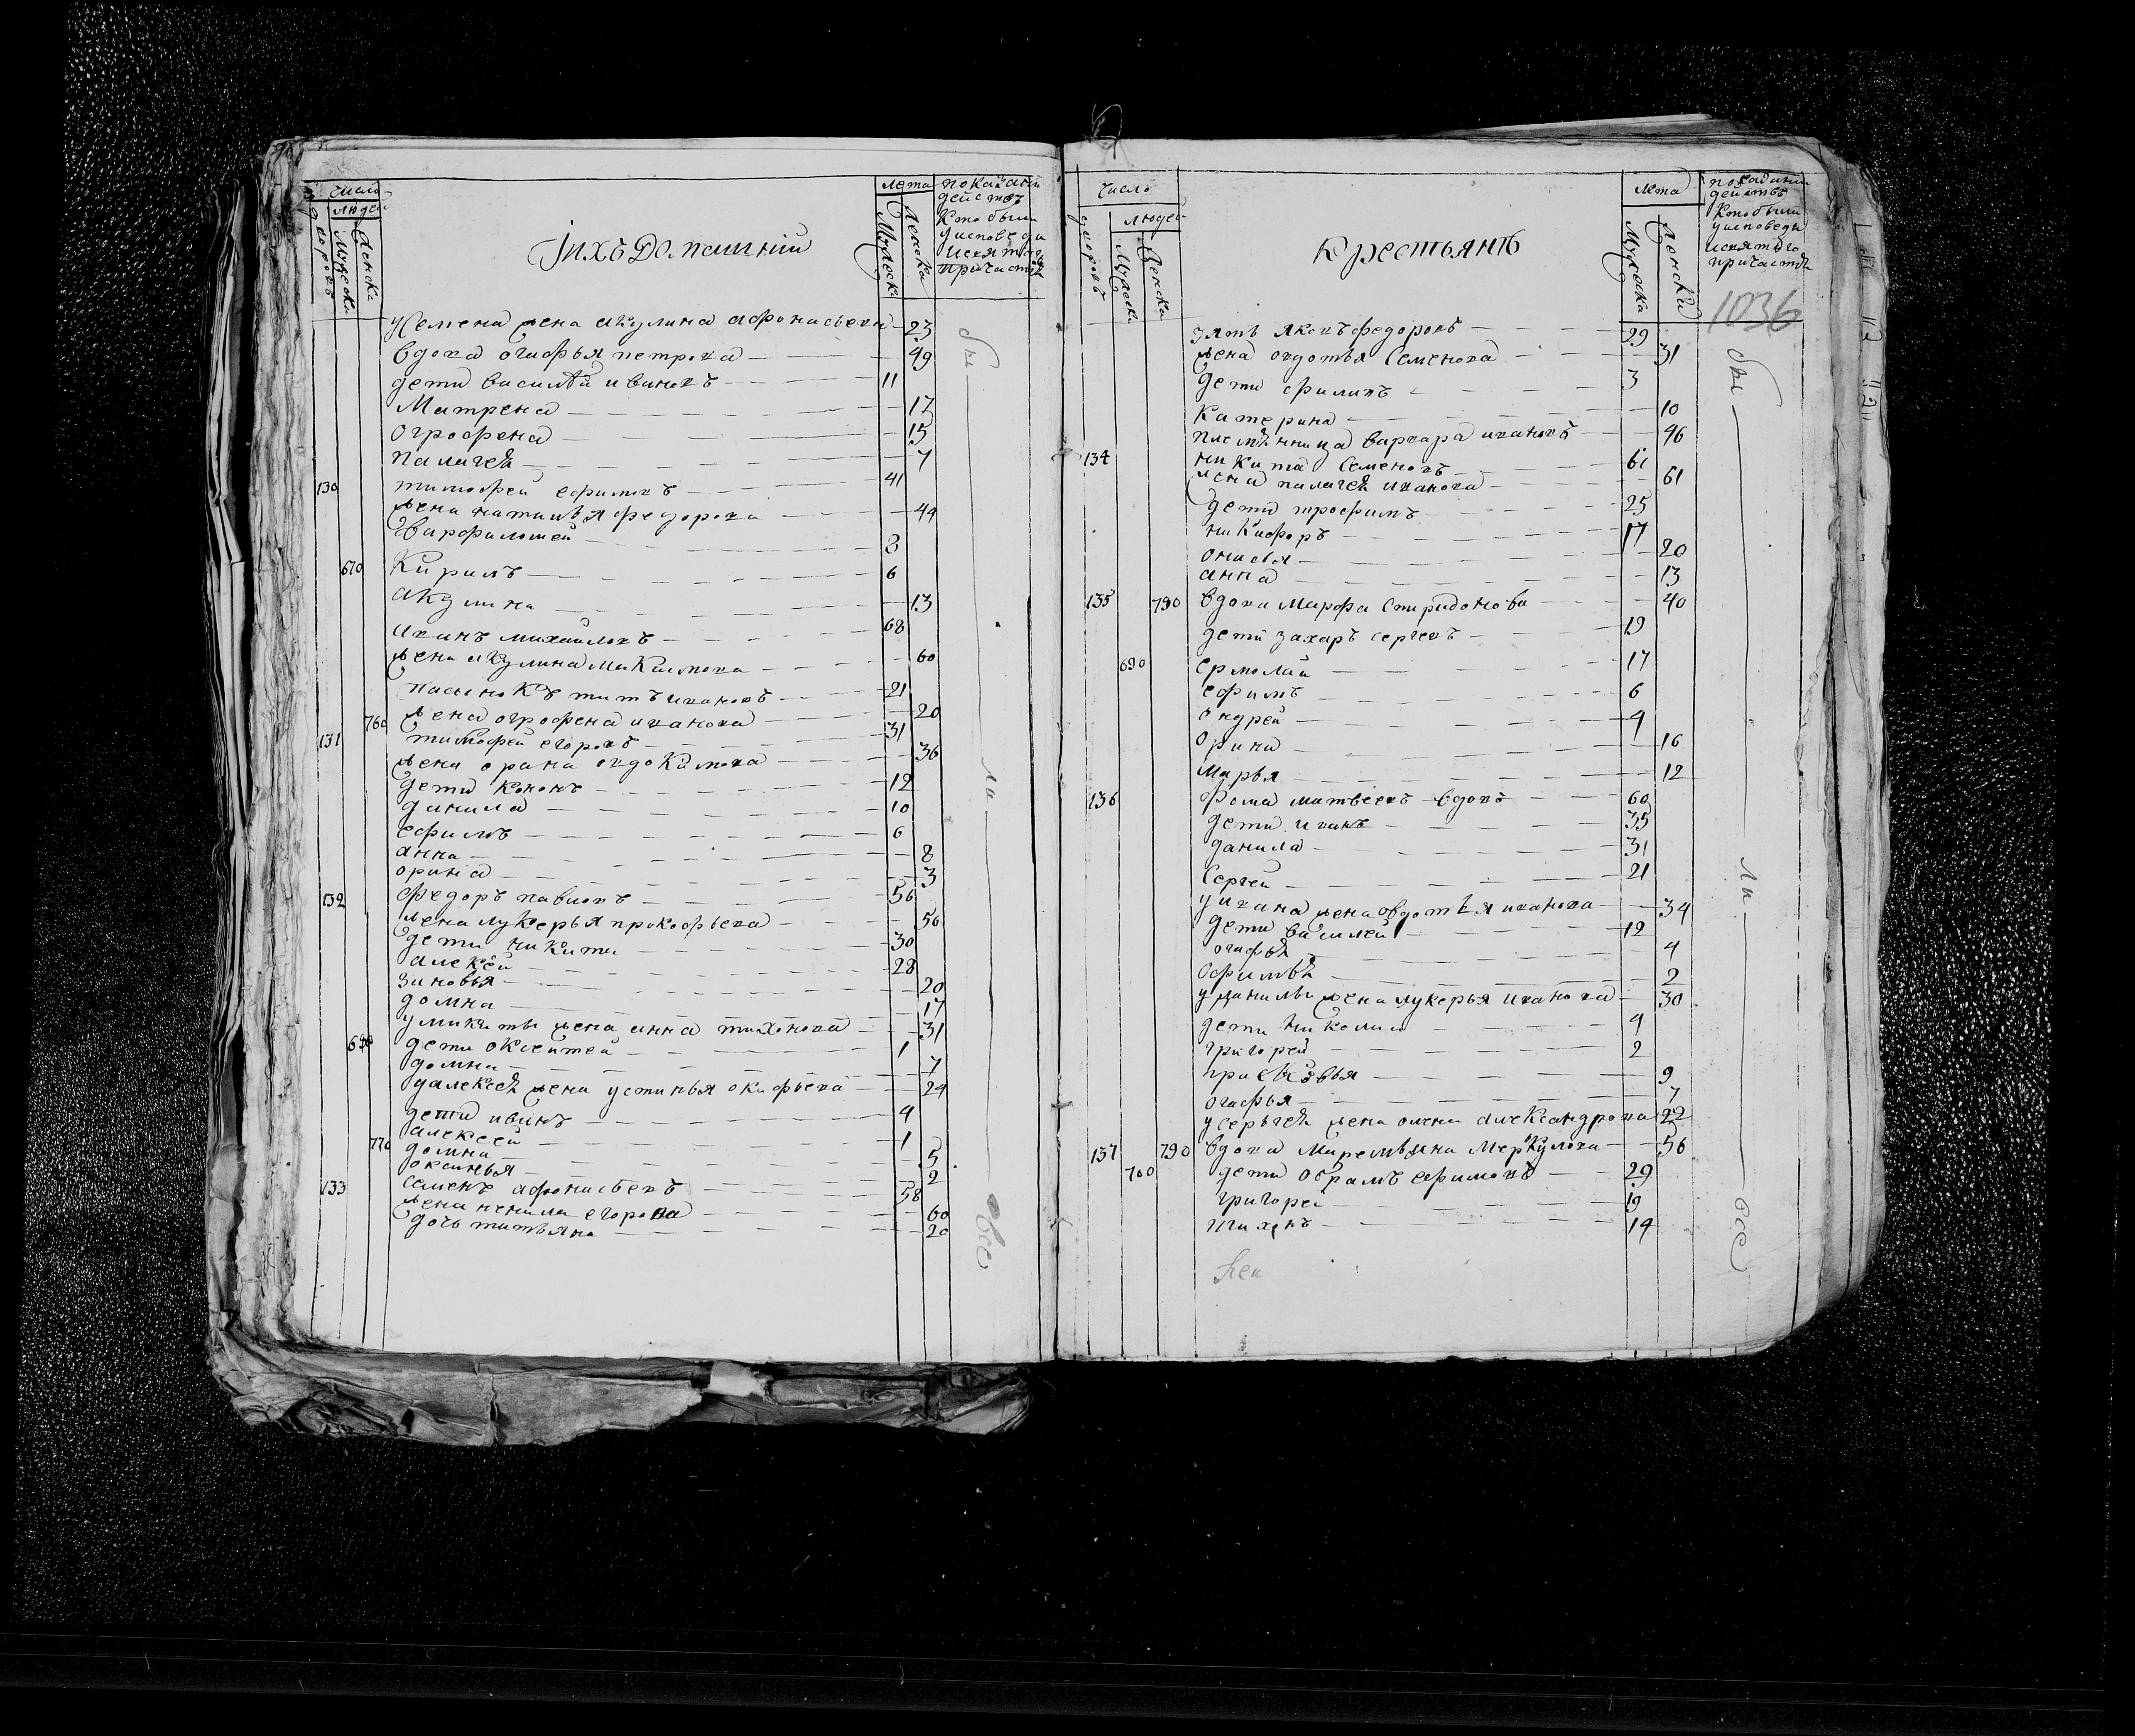 число
людей
дворовъ
мужеска
женска
Iихъ Домашнiй
лета
мужеска
женска
показани
действъ
кто были
у исповеди
и святаго
причастія
у Семена жена акулина афонасьева 23
вдова огафья петрова 49
дети василѣй ивановъ 11
Матрена 17
огрофена 15
палагея 7
130 тимофей ефимовъ 41
жена наталья федорова 44
варфаломей 8
670 Кирилъ 6
акулина 13
иванъ михайловъ 68
жена акулина максимова 60
пасынокъ титъ ивановъ 21
760 жена огрофена иванова 20
131 тимофей егоровъ 31
жена орина овдокимова 36
дети кононъ 12
данила 10
ефимъ 6
анна 8
орина 3
132 федоръ павловъ 56
жена лукерья прокофьева 50
дети никита 30
алексей 28
зиновья 20
домна 17
у никиты жена анна тихонова 31
680 дети оксентей 1
домна 7
у алексея жена устинья окифьева 24
дети иванъ 4
алексей 1
770 домна 5
оксинья 2
133 семенъ афонасьевъ 58
жена ненила егорова 60
дочь татьяна 20
были
все
число
людей
дворовъ
мужеска
женска
Крестьянъ
лета
мужеска
женска
показани
действъ
кто были
у исповеди
и святаго
причастія
1036
зять яковъ федоровъ 29
жена овдотья Семенова 31
дети филипъ 3
катерина 10
племѣнница варвара ивановъ 46
134 никита Семеновъ 61
жена палагея иванова 61
дети трофимъ 25
никифоръ 17
онисья 20
анна 13
135 790 вдова марфа спиридонова 40
дети захаръ сергевъ 19
690 ермолай 17
ефимъ 6
ондрей 4
орина 16
марья 12
136 фома матвеевъ вдовъ 60
дети иванъ 35
данила 31
Сергей 21
у ивана жена овдотья иванова 34
дети василей 12
огафья 4
офимья 2
у данилы жена лукерья иванова 30
дети николай 4
григорей 2
прасковья 9
огафья 7
у сергея жена олена александрова 22
137 790 вдова маремьяна меркулова 56
700 дети обрамъ ефимовъ 29
григорей 19
тихонъ 14
были
все